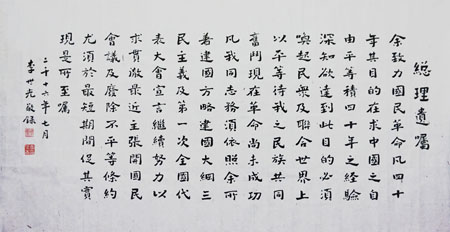 總理遺囑
余致力國民革命凡四十
年其目的在求中國之自
由平等積四十年之經驗
深知欲達到此目的必須
喚起民眾及聯合世界上
以平等待我之民族共同
奮鬥現在革命尚未成功
凡我同志務須依照余所
著建國方略建國大綱三
民主義及第一次全國代
表大會宣言繼續努力以
求貫徹最近主張開國民
會議及廢除不平等條約
尤須於最短期間促其實
現是所至囑
二千十六年七月
李世光敬錄